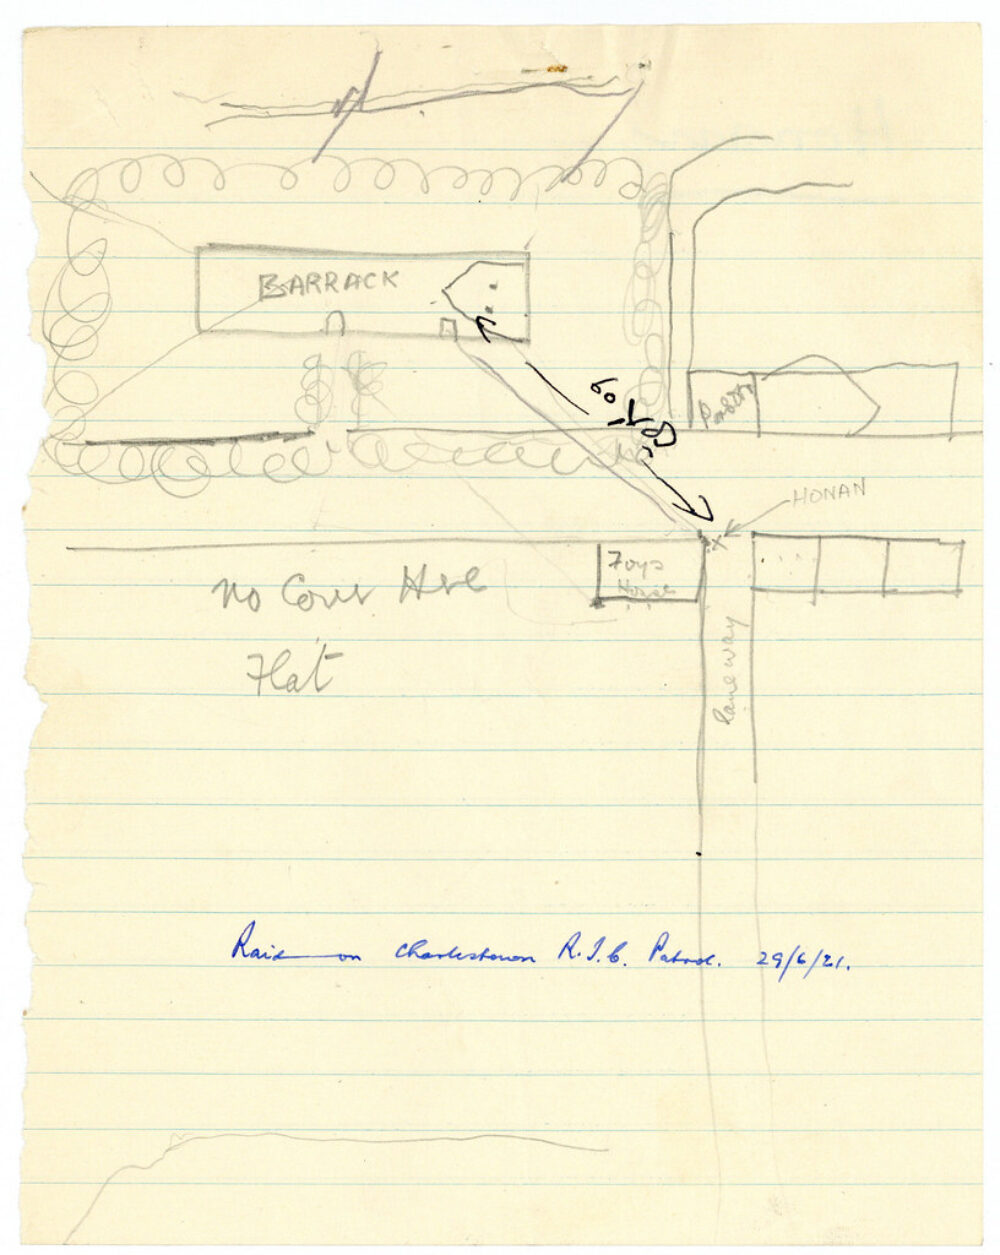 BARRACK
HONAN
Foys
House
No Cover Here
Flat
Laneway
Raid on Charlestown R.I.C. Patrol. 29/6/21.